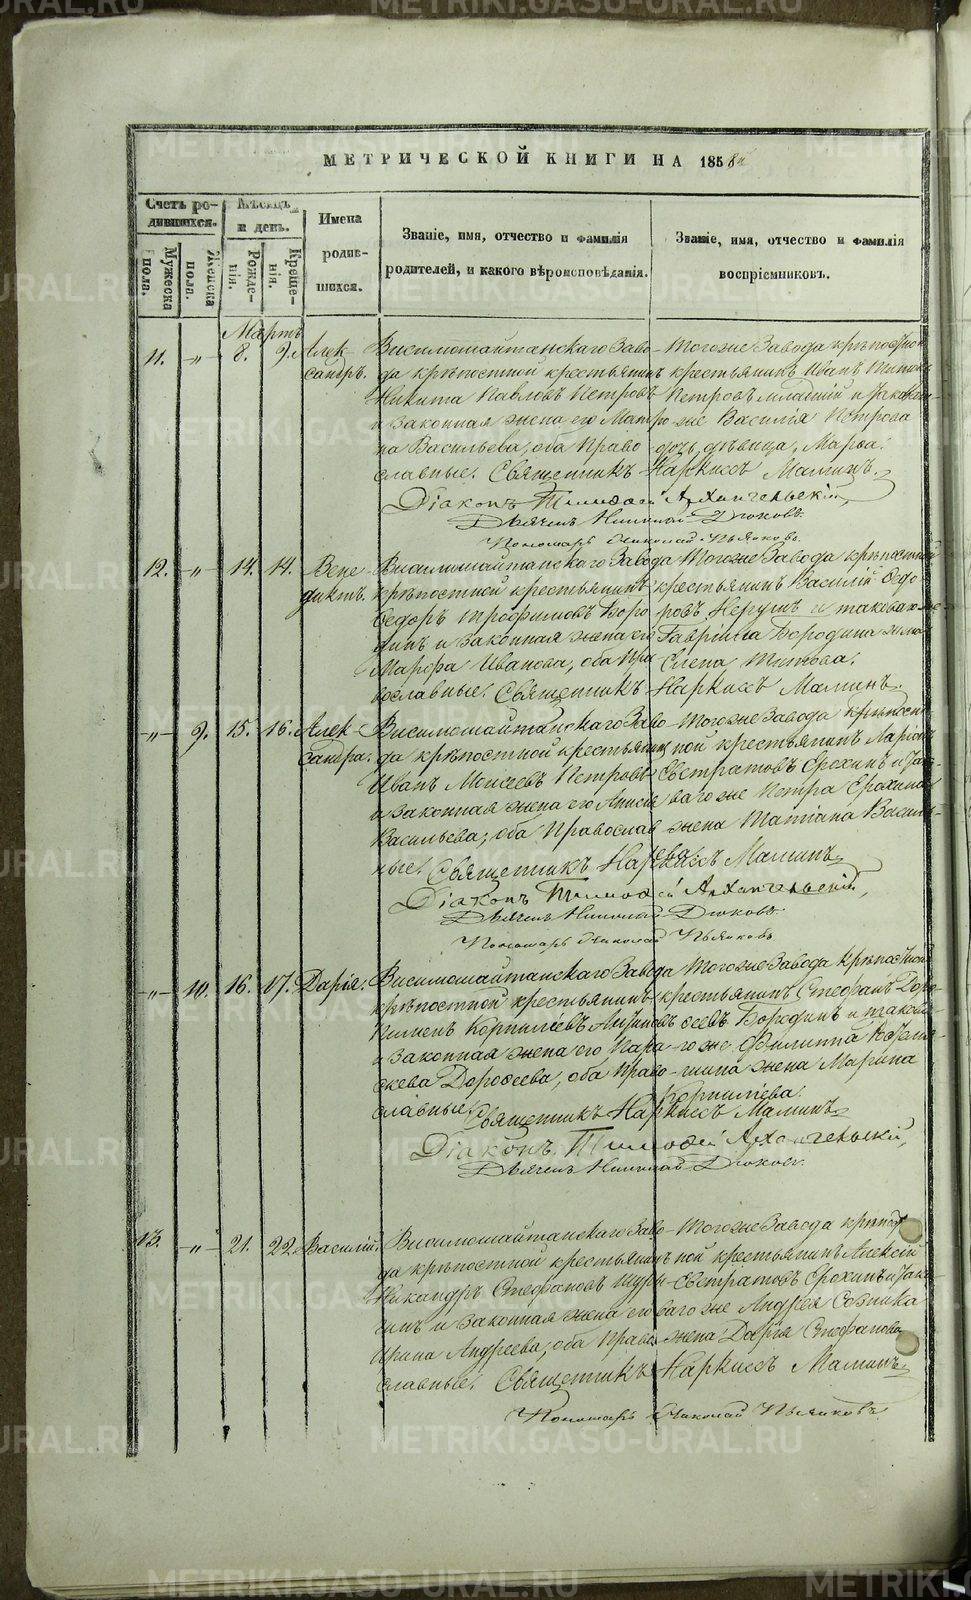 МЕТРИЧЕСКОЙ КНИГИ НА 1858й
Счетъ ро-
дившихся.
Мужеска
пола.
Женска
пола.
Мѣсяцъ
и день.
Рожде-
нія.
Креще-
нія.
Имена
родив-
шихся.
Званіе, имя, отчество и фамилія
родителей, и какого вѣроисповѣданія.
Званіе, имя, отчество и фамилія
воспріемниковъ.
Мартъ
11. „ 8. 9. Алек-
сандръ.
Висимошайтанскаго Заво-
да крѣпостной крестьянинъ
Никита Павловъ Петровъ
и законная жена его Матро
на Васильева, оба право
славные.
Тогоже Завода крѣпостной
крестьянинъ Иванъ
Петровъ младшій и
же Василія Петрова
дочь дѣвица, Марья.
Священникъ Наркисъ Маминъ.
Діаконъ Тимофей Архангельскій,
Дьячекъ Николай Дюковъ.
Пономарь Николай Пьянковъ.
12. „ 14. 14. Вене
диктъ.
Висимошайтанскаго Завода
крѣпостной крестьянинъ
Федоръ Трофимовъ Боро
динъ и законная жена его
Марфа Иванова, оба пра
вославные.
Тогоже Завода крѣпостной
крестьянинъ Василій Федо
ровъ и таковаго же
Гавріила Бородина жена
Елена Титова.
Священникъ Наркисъ Маминъ.
„ 9. 15. 16. Алек-
сандра.
Висимошайтанскаго Заво-
да крѣпостной крестьянинъ
Иванъ Моисеевъ Петровъ
и законная жена его Анисья
Васильева, оба православ
ные.
Тогоже Завода крѣпост-
ной крестьянинъ Ларіонъ
Евстратовъ Ерохинъ и тако-
ваго же Петра Ерохина
жена Татіана Василь-
ева.
Священникъ Наркисъ Маминъ.
Діаконъ Тимофей Архангельскій,
Дьячекъ Николай Дюковъ.
Пономарь Николай Пьянковъ
„ 10. 16. 17. Дарія.
Висимошайтанскаго Завода
крѣпостной крестьянинъ
Пименъ Корниліевъ
и законная жена его Пара
скева Дорофеева, оба право-
славные.
Тогоже Завода крѣпостной
крестьянинъ Стефанъ Доро
феевъ Бородинъ и таково-
го же Филиппа
жена Марина
Корниліева.
Священникъ Наркисъ Маминъ
Діаконъ Тимофей Архангельскій,
Дьячекъ Николай Дюковъ.
13. „ 21. 22. Василій.
Висимошайтанскаго Заво-
да крѣпостной крестьянинъ
Никандръ Стефановъ
и законная жена его
Ирина Андреева, оба право
славные.
Тогоже Завода крѣпост
ной крестьянинъ Алексій
Евстратовъ Ерохинъ и тако-
ваго же Андрея
жена Дарія Стефанова
Священникъ Наркисъ Маминъ
Пономарь Николай Пьянковъ
METRIKI.GASO-URAL.RU